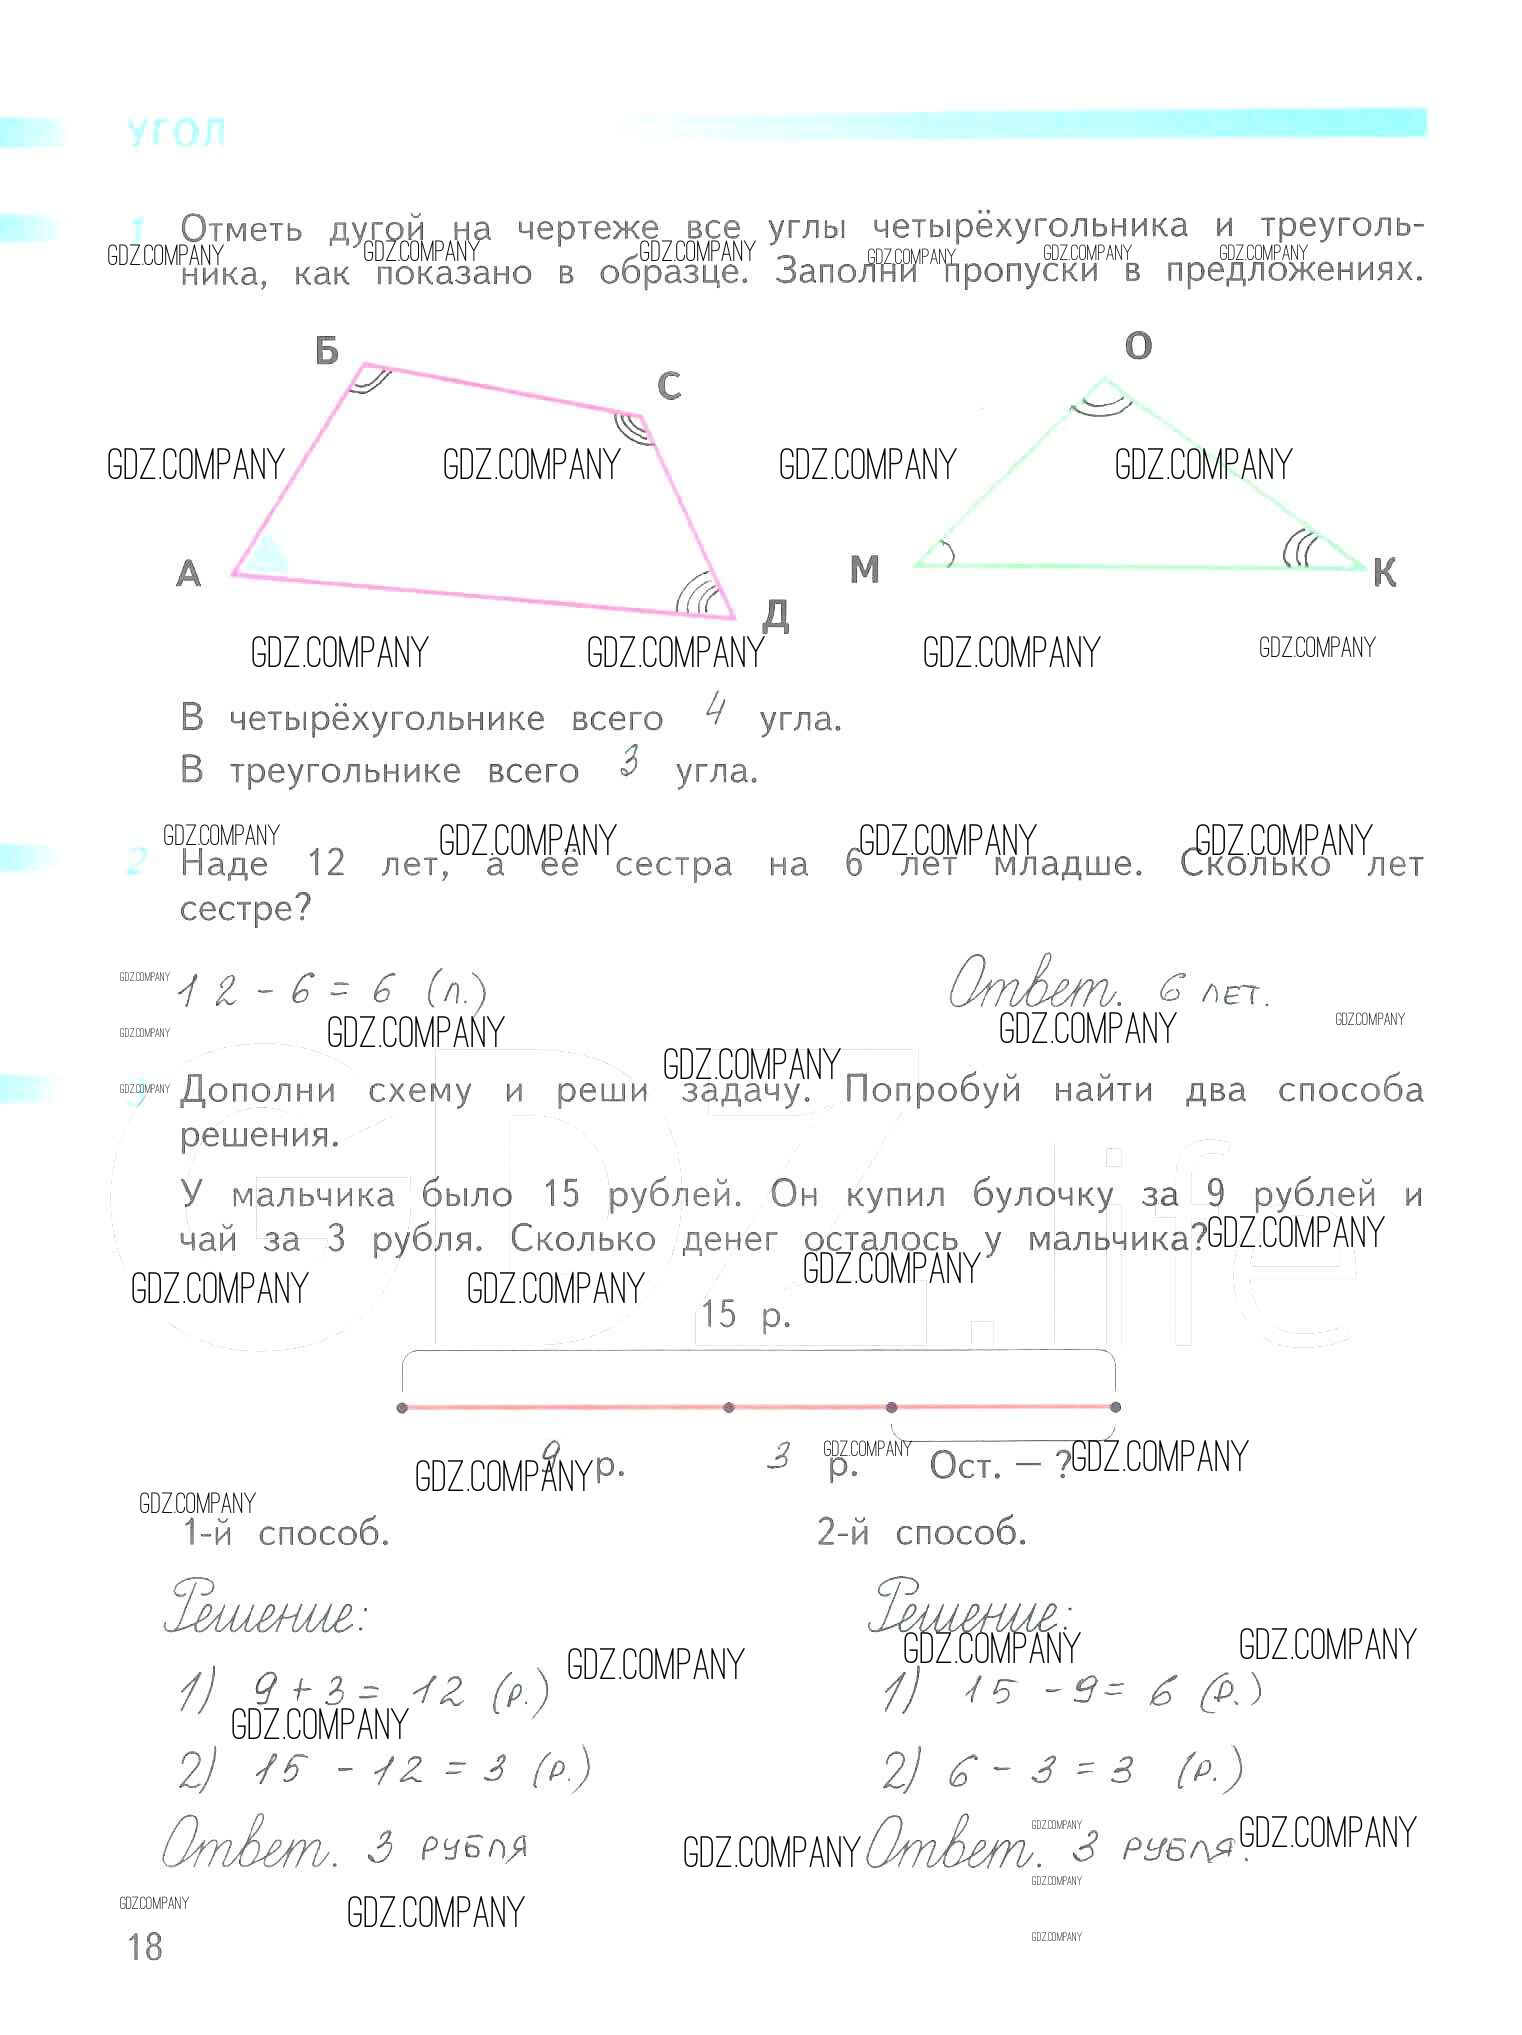 УГОЛ
1 Отметь дугой на чертеже все углы четырёхугольника и треуголь-
GDZ.COMPANY GDZ.COMPANY GDZ.COMPANY GDZ.COMPANY GDZ.COMPANY GDZ.COMPANY
ника, как показано в образце. Заполни пропуски в предложениях.
Б С О
GDZ.COMPANY GDZ.COMPANY GDZ.COMPANY GDZ.COMPANY
А Д М К
GDZ.COMPANY GDZ.COMPANY GDZ.COMPANY GDZ.COMPANY
В четырёхугольнике всего 4 угла.
В треугольнике всего 3 угла.
GDZ.COMPANY GDZ.COMPANY GDZ.COMPANY GDZ.COMPANY
2 Наде 12 лет, а её сестра на 6 лет младше. Сколько лет
сестре?
GDZ.COMPANY
12 - 6 = 6 (л.) Ответ. 6 лет.
GDZ.COMPANY GDZ.COMPANY GDZ.COMPANY GDZ.COMPANY
GDZ.COMPANY
GDZ.COMPANY
3 Дополни схему и реши задачу. Попробуй найти два способа
решения.
GDZ.life
У мальчика было 15 рублей. Он купил булочку за 9 рублей и
чай за 3 рубля. Сколько денег осталось у мальчика?
GDZ.COMPANY
GDZ.COMPANY GDZ.COMPANY GDZ.COMPANY
15 р.
9 р. 3 р. Ост. — ?
GDZ.COMPANY GDZ.COMPANY GDZ.COMPANY
GDZ.COMPANY
1-й способ. 2-й способ.
Решение: Решение:
GDZ.COMPANY GDZ.COMPANY GDZ.COMPANY
1) 9 + 3 = 12 (р.) 1) 15 - 9 = 6 (р.)
GDZ.COMPANY
2) 15 - 12 = 3 (р.) 2) 6 - 3 = 3 (р.)
GDZ.COMPANY GDZ.COMPANY GDZ.COMPANY
Ответ. 3 рубля Ответ. 3 рубля.
GDZ.COMPANY
GDZ.COMPANY GDZ.COMPANY
18
GDZ.COMPANY